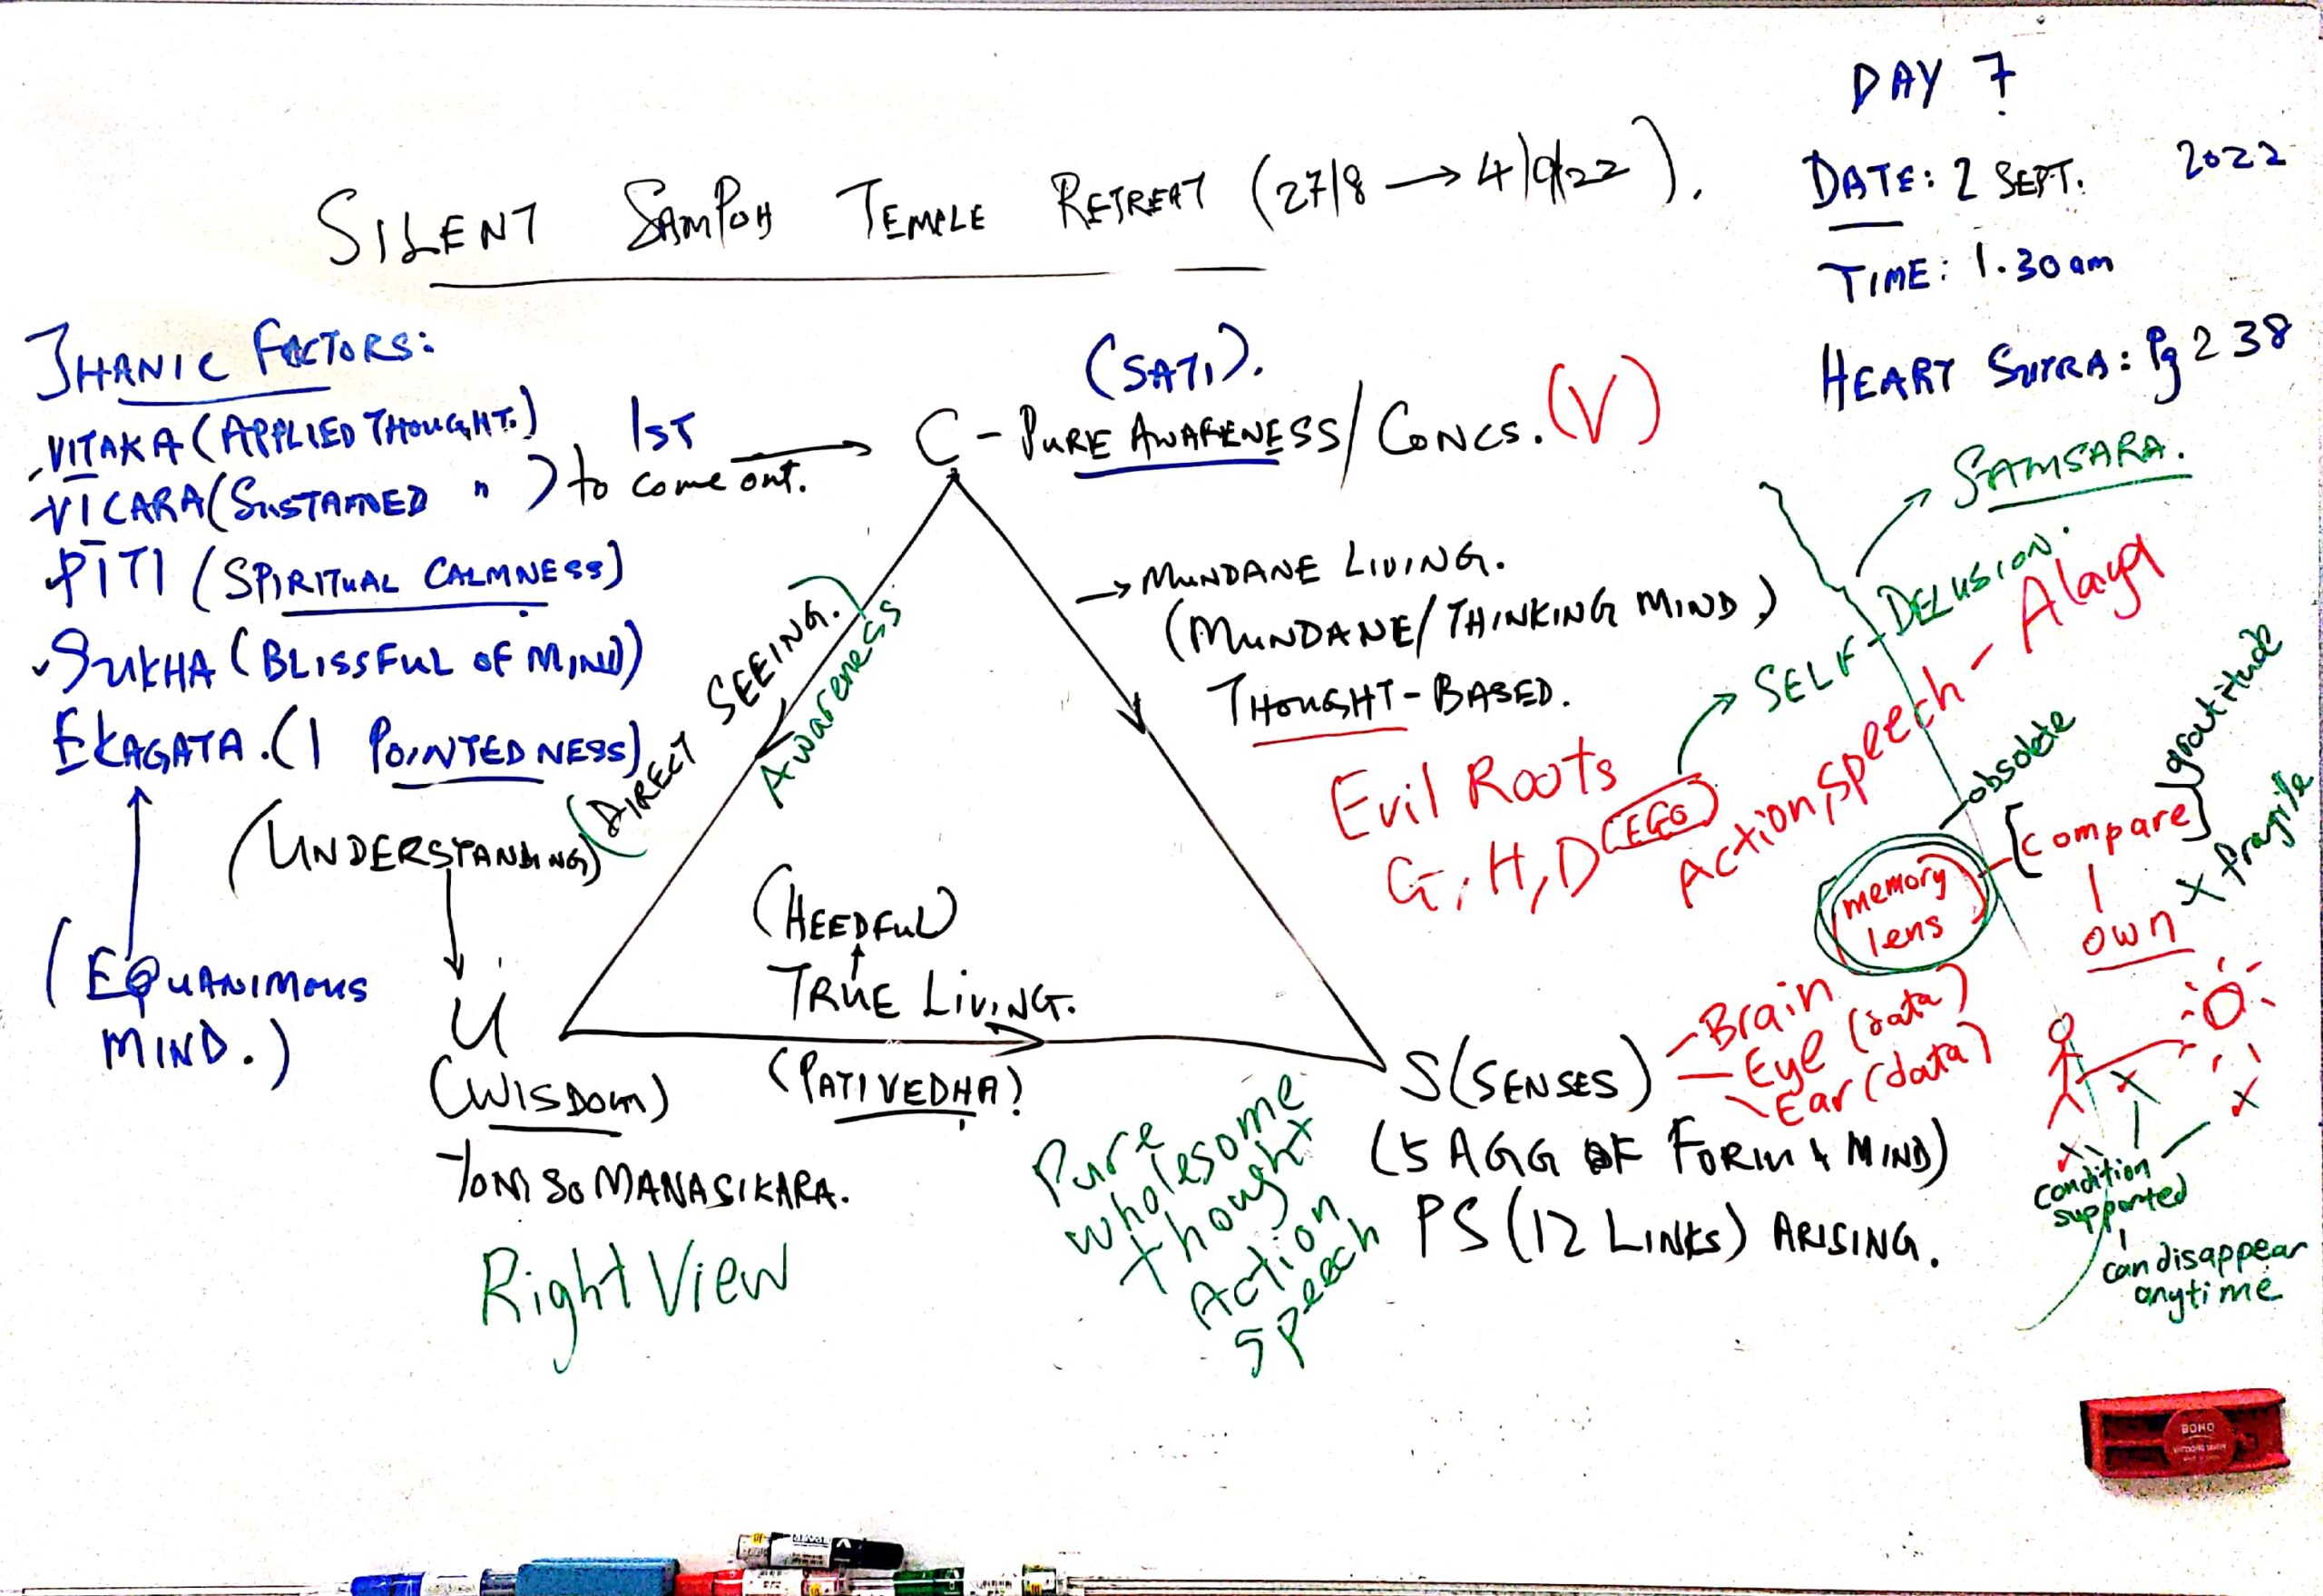 DAY 7
DATE: 2 SEPT. 2022
TIME: 1.30am
HEART SUTRA: Pg 238
SILENT SAMPOH TEMPLE RETREAT (27/8 → 4/9/22).
JHANIC FACTORS:
VITAKA (APPLIED THOUGHT.)
VICARA (SUSTAINED " )
1ST
to come out. →
PITI (SPIRITUAL CALMNESS)
SUKHA (BLISSFUL OF MIND)
EKAGATA. (1 POINTEDNESS)
(EQUANIMOUS
MIND.)
(SATI).
C - PURE AWARENESS / CONCS. (V)
(DIRECT SEEING.
Awareness
(UNDERSTANDING)
U
(WISDOM)
YONISOMANASIKARA.
Right View
(HEEDFUL)
TRUE LIVING.
(PATIVEDHA)
→ MUNDANE LIVING.
(MUNDANE / THINKING MIND)
THOUGHT-BASED.
Evil Roots
G, H, D (EGO)
→ SELF-DELUSION.
→ SAMSARA.
Action, Speech - Alaya
obsolete
memory
lens
[compare]
gratitude
own
X fragile
S (SENSES)
- Brain
- Eye (data)
- Ear (data)
(5 AGG OF FORM & MIND)
PS (12 LINKS) ARISING.
Pure
wholesome
thought
Action
Speech
condition
supported
can disappear
anytime